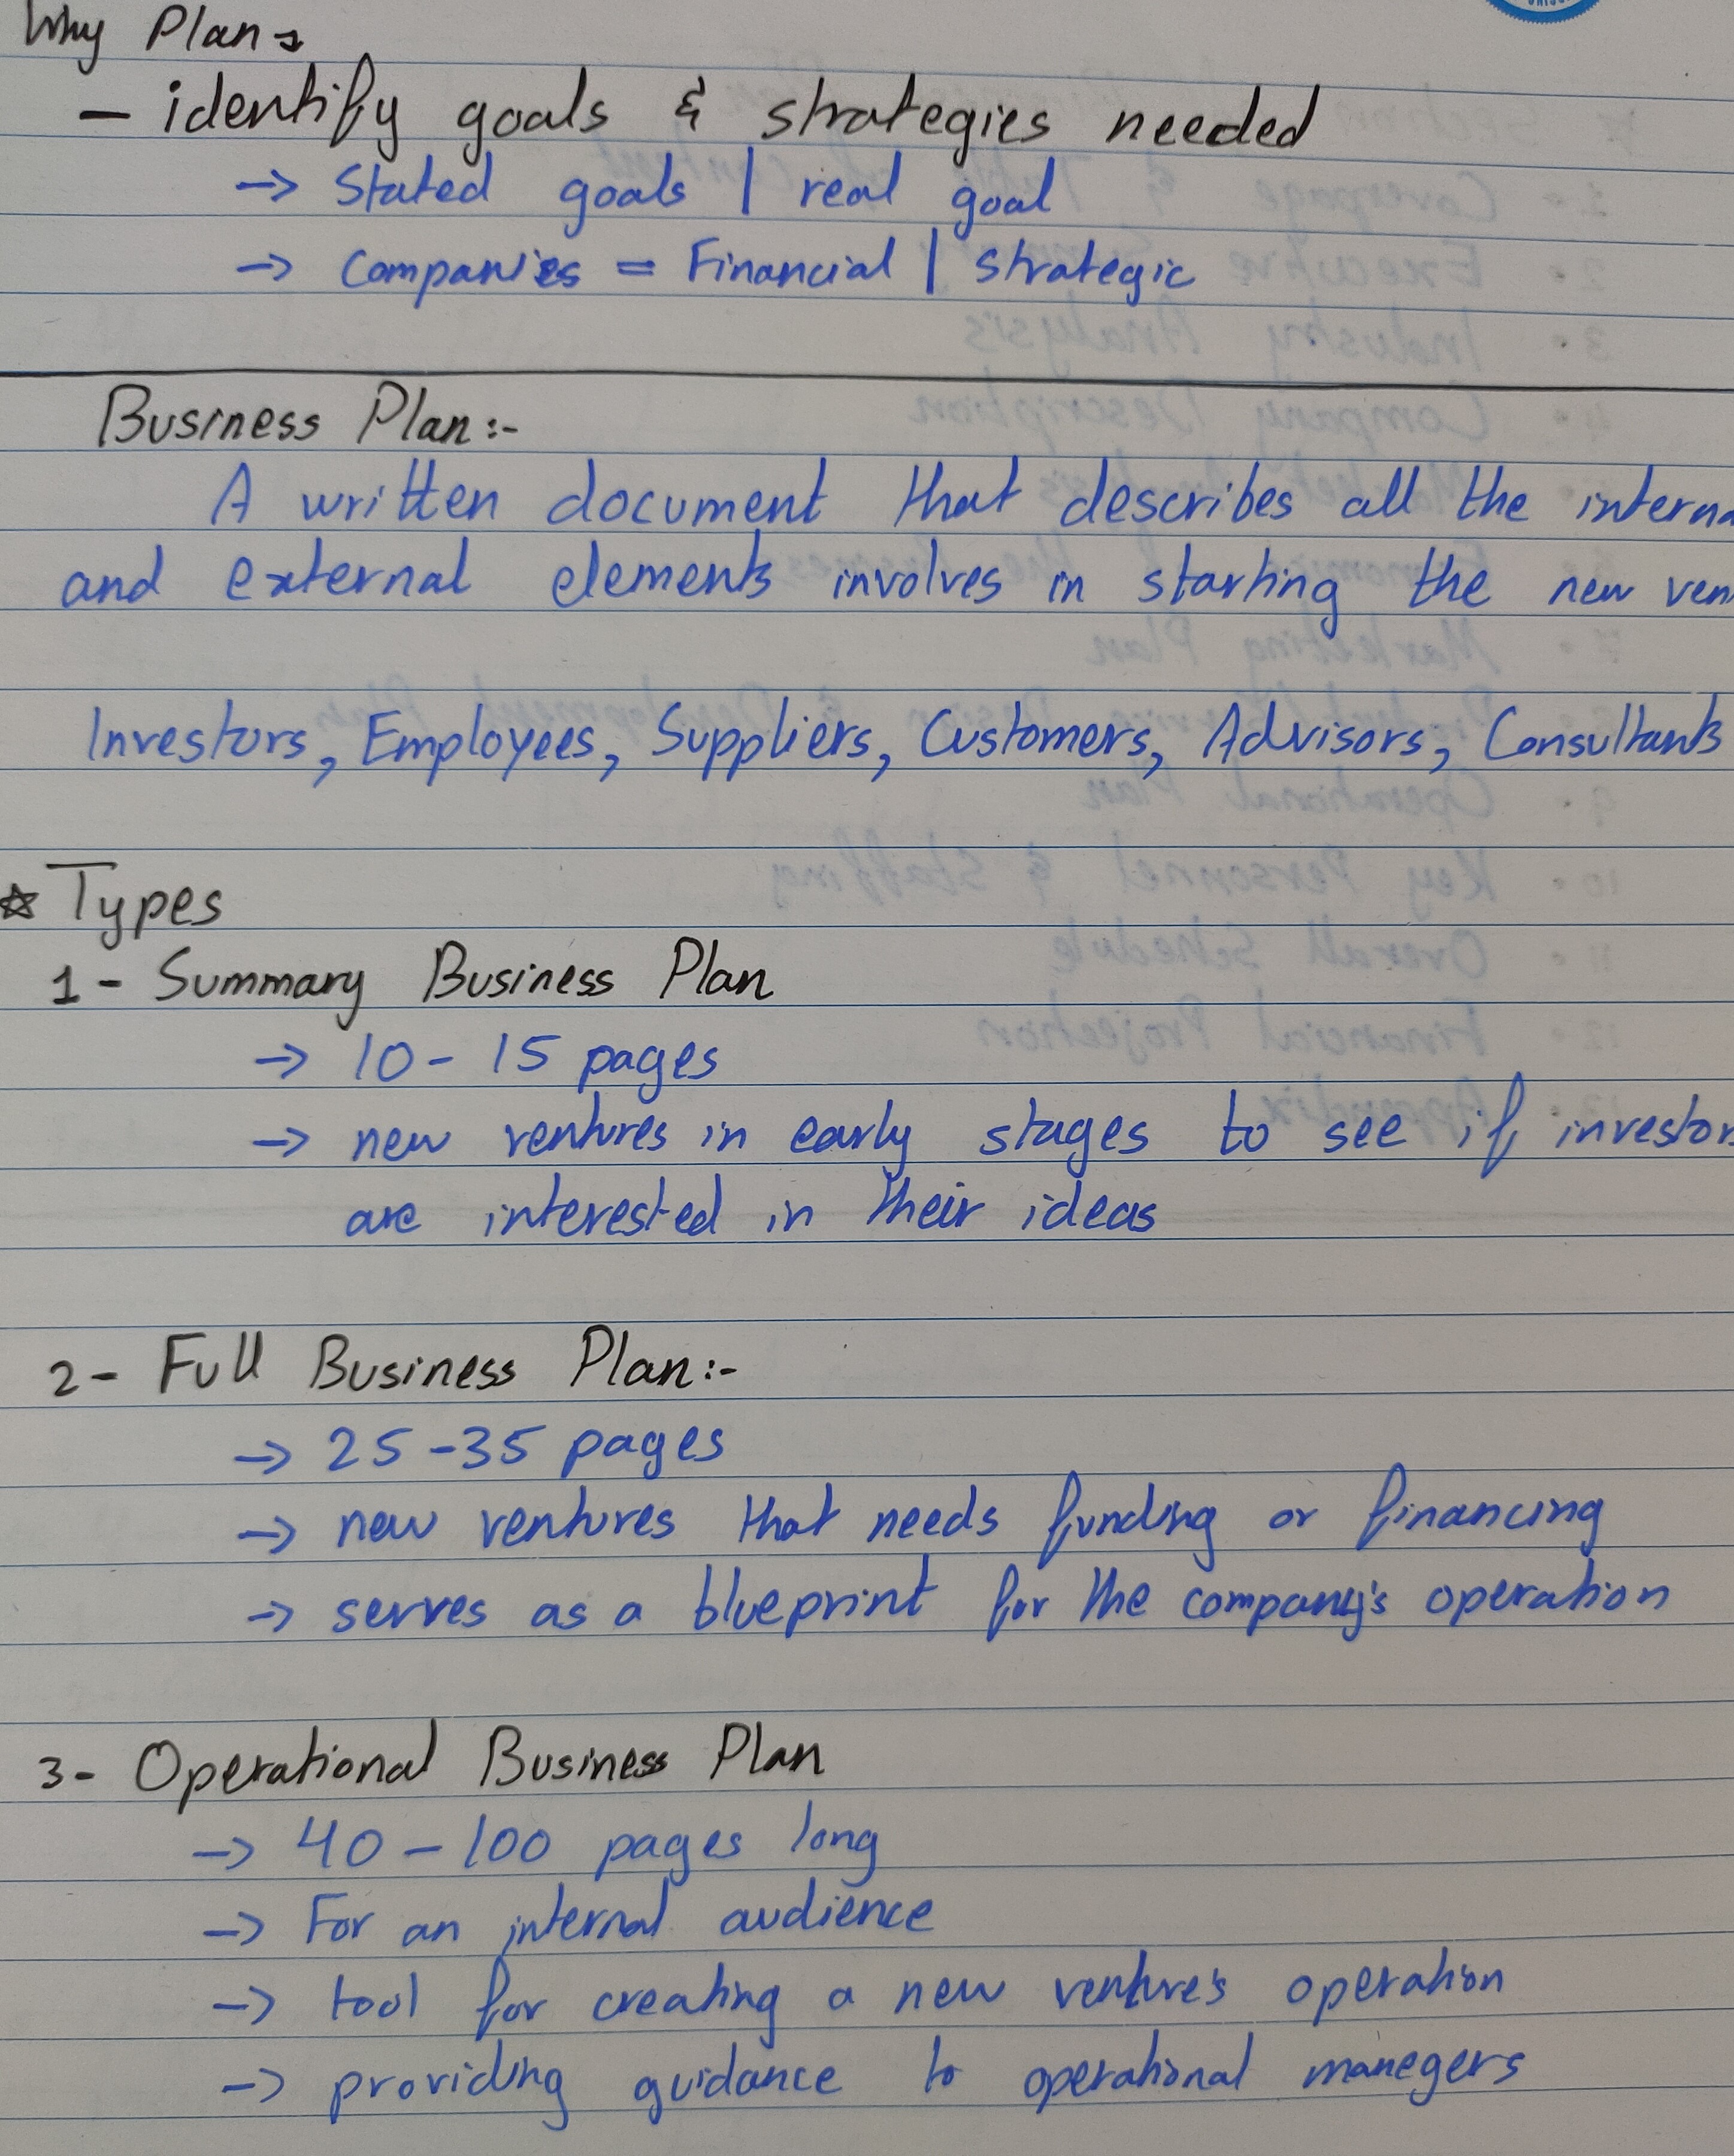 Why Plan →
- identify goals & strategies needed
→ Stated goals | real goal
→ Companies = Financial | strategic
Business Plan :-
A written document that describes all the interna
and external elements involves in starting the new ven
Investors, Employees, Suppliers, Customers, Advisors, Consultants
☆ Types
1 - Summary Business Plan
→ 10 - 15 pages
→ new ventures in early stages to see if investor
are interested in their ideas
2 - Full Business Plan :-
→ 25 - 35 pages
→ new ventures that needs funding or financing
→ serves as a blueprint for the company's operation
3 - Operational Business Plan
→ 40 - 100 pages long
→ For an internal audience
→ tool for creating a new venture's operation
→ providing guidance to operational manegers